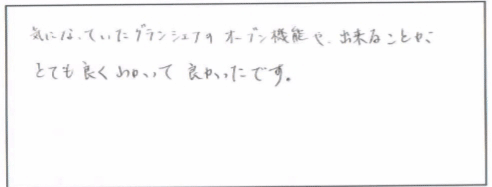 気になっていたグランシェフのオーブン機能や、出来ることが、
とても良くわかって良かったです。